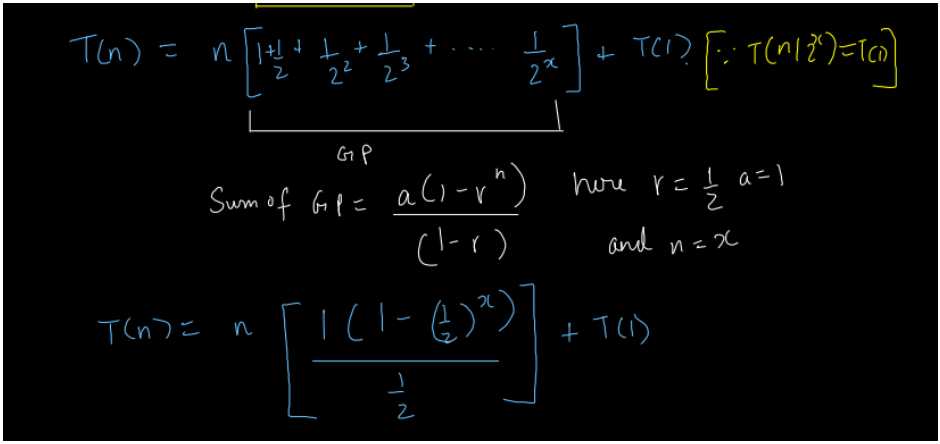 T(n) = n [1+1/2 + 1/2^2 + 1/2^3 + .... 1/2^x] + T(1) [∵ T(n/2^x)=T(1)]
GP
Sum of GP = a(1-r^n)/(1-r) here r = 1/2 a=1
and n = x
T(n) = n [1(1-(1/2)^x)/(1/2)] + T(1)